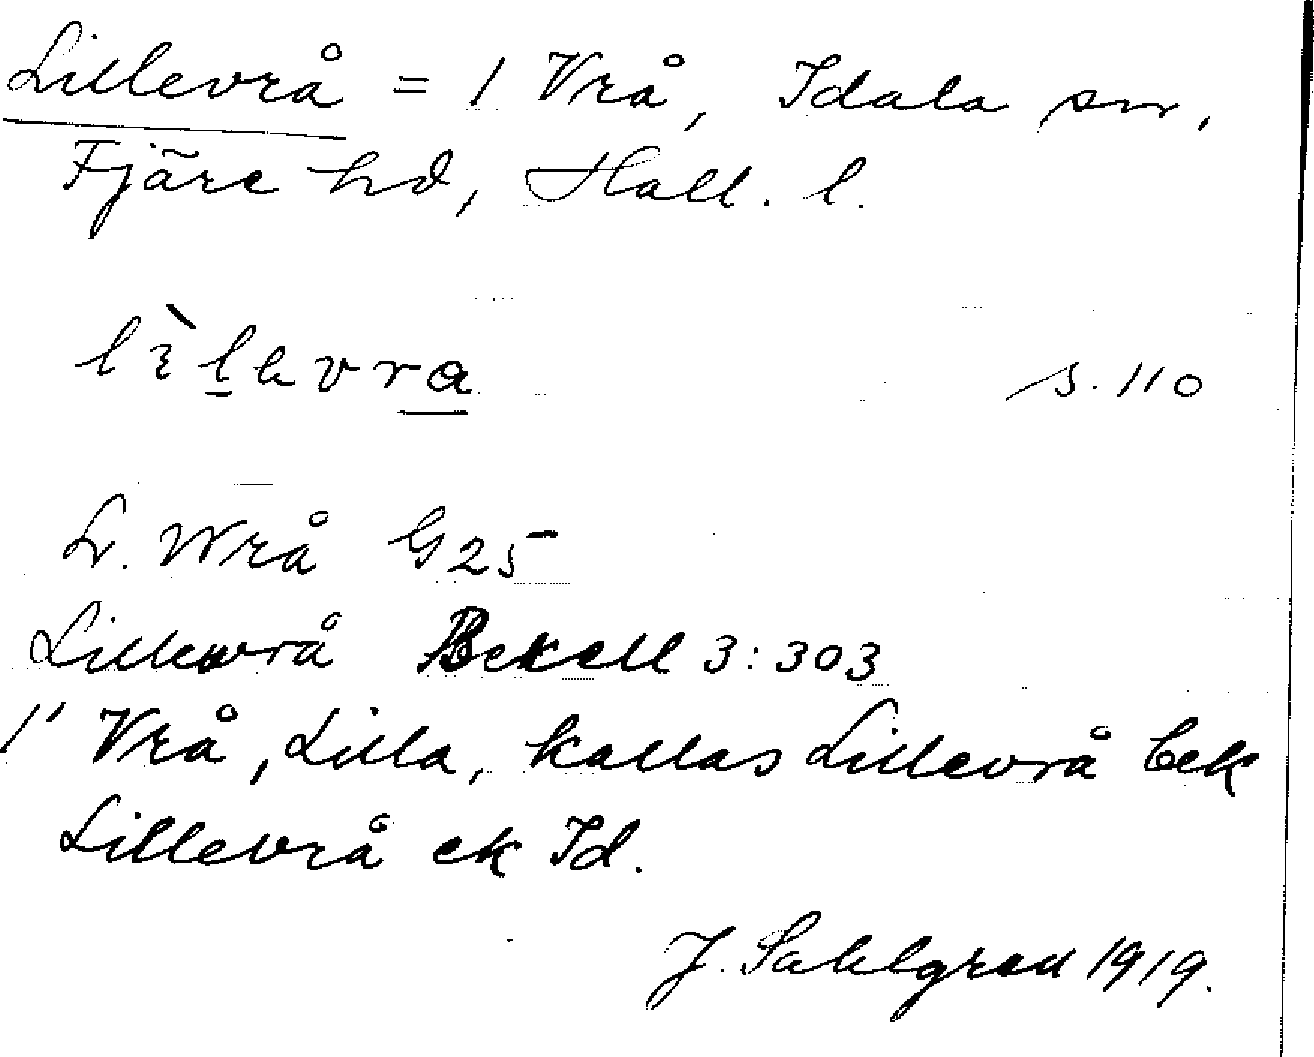 Lillevrå = 1 Vrå, Idala sn,
Fjäre hd, Hall. l.
lìlavra s. 110
L. Wrå G25
Lillewrå Bexell 3:303
1' Vrå, Lilla, kallas Lillevrå bek
Lillevrå ek Id.
J. Sahlgren 1919.